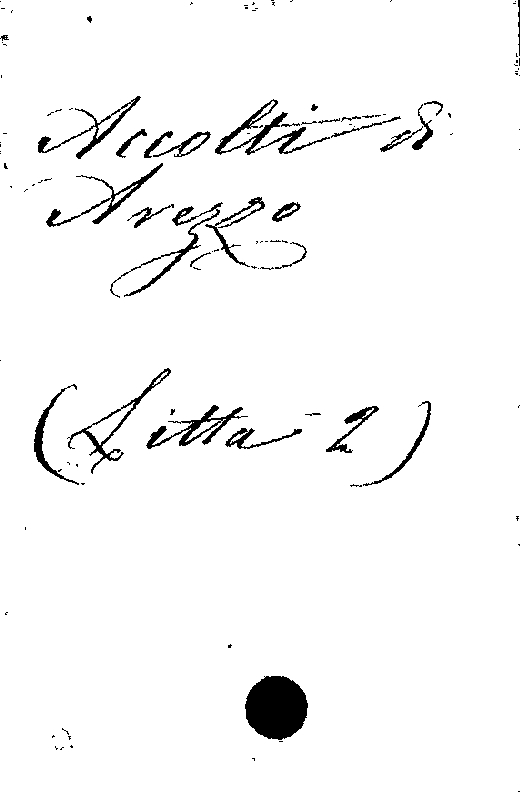 Accolti di
Arezzo
(Litta 2)